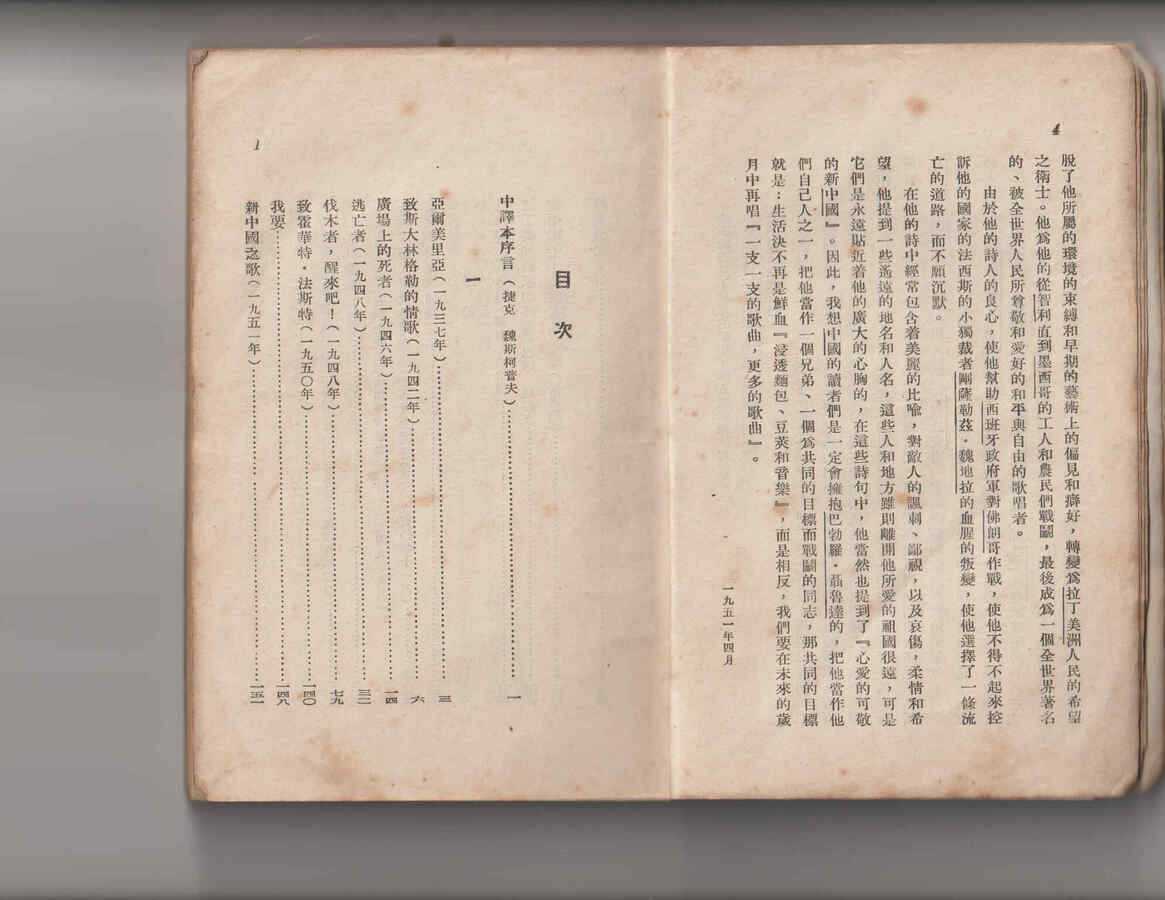 4
脫了他所屬的環境的束縛和早期的藝術上的偏見和癖好，轉變爲拉丁美洲人民的希望
之衛士。他爲他的從智利直到墨西哥的工人和農民們戰鬭，最後成爲一個全世界著名
的、被全世界人民所尊敬和愛好的和平與自由的歌唱者。
由於他的詩人的良心，使他幫助西班牙政府軍對佛朗哥作戰，使他不得不起來控
訴他的國家的法西斯的小獨裁者剛薩勒茲·魏地拉的血腥的叛變，使他選擇了一條流
亡的道路，而不願沉默。
在他的詩中經常包含着美麗的比喩，對敵人的諷刺、鄙視，以及哀傷，柔情和希
望，他提到一些遙遠的地名和人名，這些人和地方雖則離開他所愛的祖國很遠，可是
它們是永遠貼近着他的廣大的心胸的，在這些詩句中，他當然也提到了『心愛的可敬
的新中國』。因此，我想中國的讀者們是一定會擁抱巴勃羅·聶魯達的，把他當作他
們自己人之一，把他當作一個兄弟、一個爲共同的目標而戰鬭的同志，那共同的目標
就是：生活決不再是鮮血『浸透麵包、豆莢和音樂』，而是相反，我們要在未來的歲
月中再唱『一支一支的歌曲，更多的歌曲』。
一九五一年四月
1
目次
中譯本序言（捷克 魏斯柯普夫）…… 一
一
亞爾美里亞（一九三七年）…… 三
致斯大林格勒的情歌（一九四二年）…… 六
廣場上的死者（一九四六年）…… 一四
逃亡者（一九四八年）…… 三二
伐木者，醒來吧！（一九四八年）…… 七九
致霍華特·法斯特（一九五〇年）…… 一四〇
我要…… 一四八
新中國之歌（一九五一年）…… 一五一